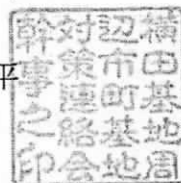 横田基地周
辺市町基地
対策連絡会
幹事之印
平